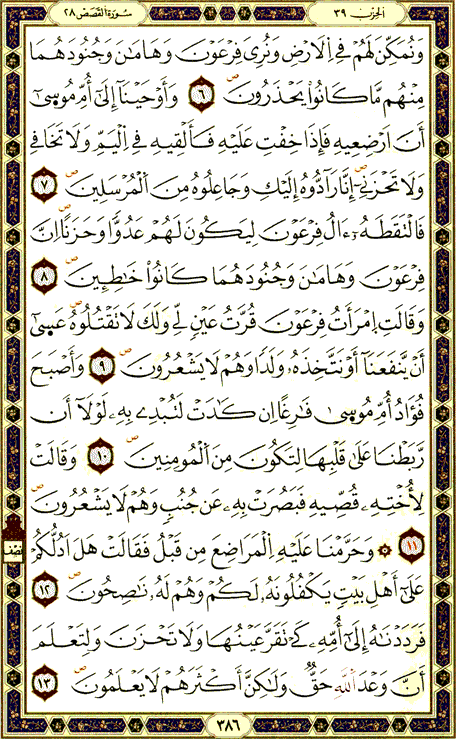 الحزب ٣٩
سورة القصص ٢٨
وَنُمَكِّنَ لَهُمْ فِے اِلَارْضِ وَنُرِيَ فِرْعَوْنَ وَهَامَٰنَ وَجُنُودَهُمَا
مِنْهُم مَّا كَانُواْ يَحْذَرُونَۖ ٦ وَأَوْحَيْنَآ إِلَىٰٓ أُمِّ مُوسَىٰٓ
أَنَ اَرْضِعِيهِ فَإِذَا خِفْتِ عَلَيْهِ فَأَلْقِيهِ فِے اِلْيَمِّ وَلَا تَخَافِے
وَلَا تَحْزَنِےٓۖ إِنَّا رَآدُّوهُ إِلَيْكِ وَجَاعِلُوهُ مِنَ اَلْمُرْسَلِينَۖ ٧
فَالْتَقَطَهُۥٓ ءَالُ فِرْعَوْنَ لِيَكُونَ لَهُمْ عَدُوّاً وَحَزَناًۖ اِنَّ
فِرْعَوْنَ وَهَامَٰنَ وَجُنُودَهُمَا كَانُواْ خَٰطِـِٕينَۖ ٨
وَقَالَتِ اِمْرَأَتُ فِرْعَوْنَ قُرَّتُ عَيْنٍ لِّے وَلَكَۖ لَا تَقْتُلُوهُ عَسَىٰٓ
أَنْ يَّنفَعَنَآ أَوْ نَتَّخِذَهُۥ وَلَداً وَهُمْ لَا يَشْعُرُونَۖ ٩ وَأَصْبَحَ
فُؤَادُ أُمِّ مُوسَىٰ فَٰرِغاً اِن كَادَتْ لَتُبْدِے بِهِۦ لَوْلَآ أَن
رَّبَطْنَا عَلَىٰ قَلْبِهَا لِتَكُونَ مِنَ اَلْمُومِنِينَۖ ١٠ وَقَالَتْ
لِأُخْتِهِۦ قُصِّيهِۖ فَبَصُرَتْ بِهِۦ عَن جُنُبٍ وَهُمْ لَا يَشْعُرُونَۖ
١١ ۞ وَحَرَّمْنَا عَلَيْهِ اِلْمَرَاضِعَ مِن قَبْلُ فَقَالَتْ هَلَ اَدُلُّكُمْ
عَلَىٰٓ أَهْلِ بَيْتٍ يَكْفُلُونَهُۥ لَكُمْ وَهُمْ لَهُۥ نَٰصِحُونَۖ ١٢
فَرَدَدْنَٰهُ إِلَىٰٓ أُمِّهِۦ كَےْ تَقَرَّ عَيْنُهَا وَلَا تَحْزَنَ وَلِتَعْلَمَ
أَنَّ وَعْدَ اَللَّهِ حَقٌّ وَلَٰكِنَّ أَكْثَرَهُمْ لَا يَعْلَمُونَۖ ١٣
نصف
٣٨٦